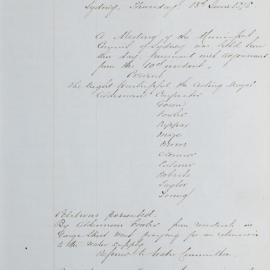 Sydney, Thursday 18th June
A Meeting of the Municipal
Council of Sydney was held
this day, pursuant with adjournment
from the 10th instant.
Present
The Right Worshipful the Acting Mayor
Aldermen Carpenter
Green
Fowler
Pepper
Moore
Oconnor
Palmer
Roberts
Taylor
Young
Petitions presented.
By Alderman Fowler from residents in
George Street West praying for an extension
to the Water supply.
Referred to Water Committee.